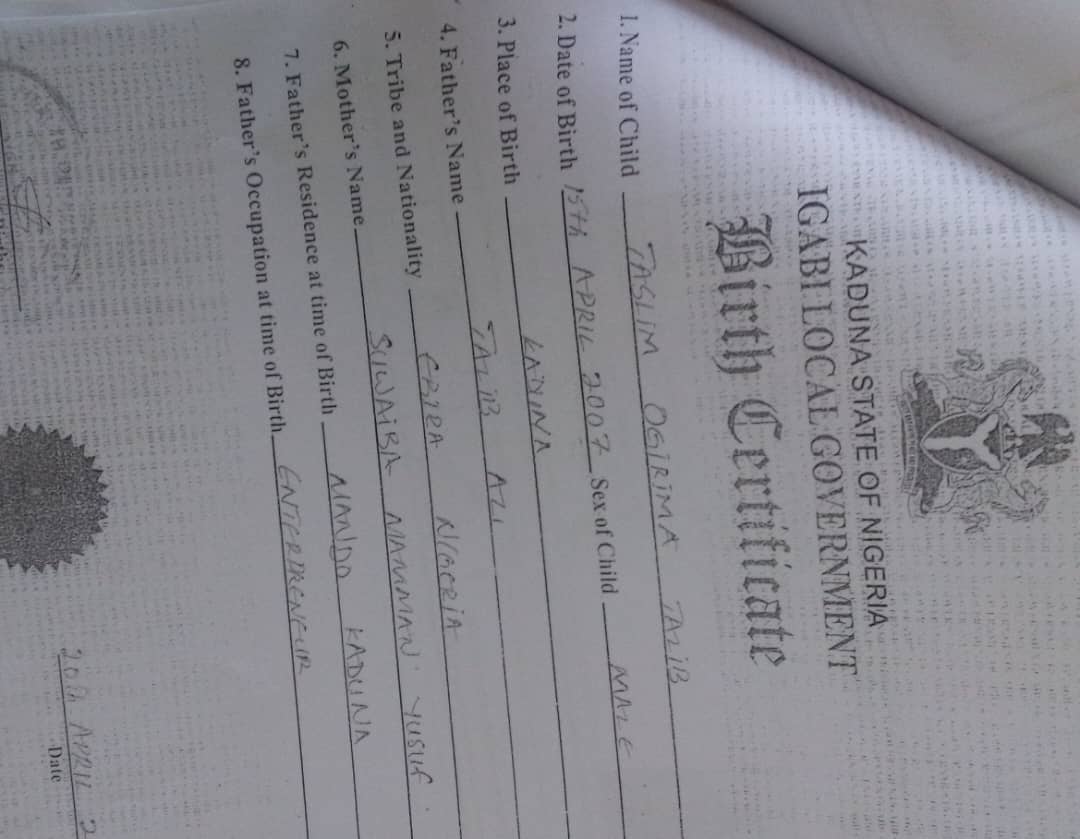 KADUNA STATE OF NIGERIA
IGABI LOCAL GOVERNMENT
Birth Certificate
1. Name of Child TASLIM OGIRIMA TALIB
2. Date of Birth 15th APRIL 2007 Sex of Child MALE
3. Place of Birth KADUNA
4. Father's Name TALIB ALI
5. Tribe and Nationality EBIRA NIGERIA
6. Mother's Name SUWAIBA MAMMAN YUSUF
7. Father's Residence at time of Birth MANDO KADUNA
8. Father's Occupation at time of Birth ENTERPRENEUR
20th APRIL 2
Date